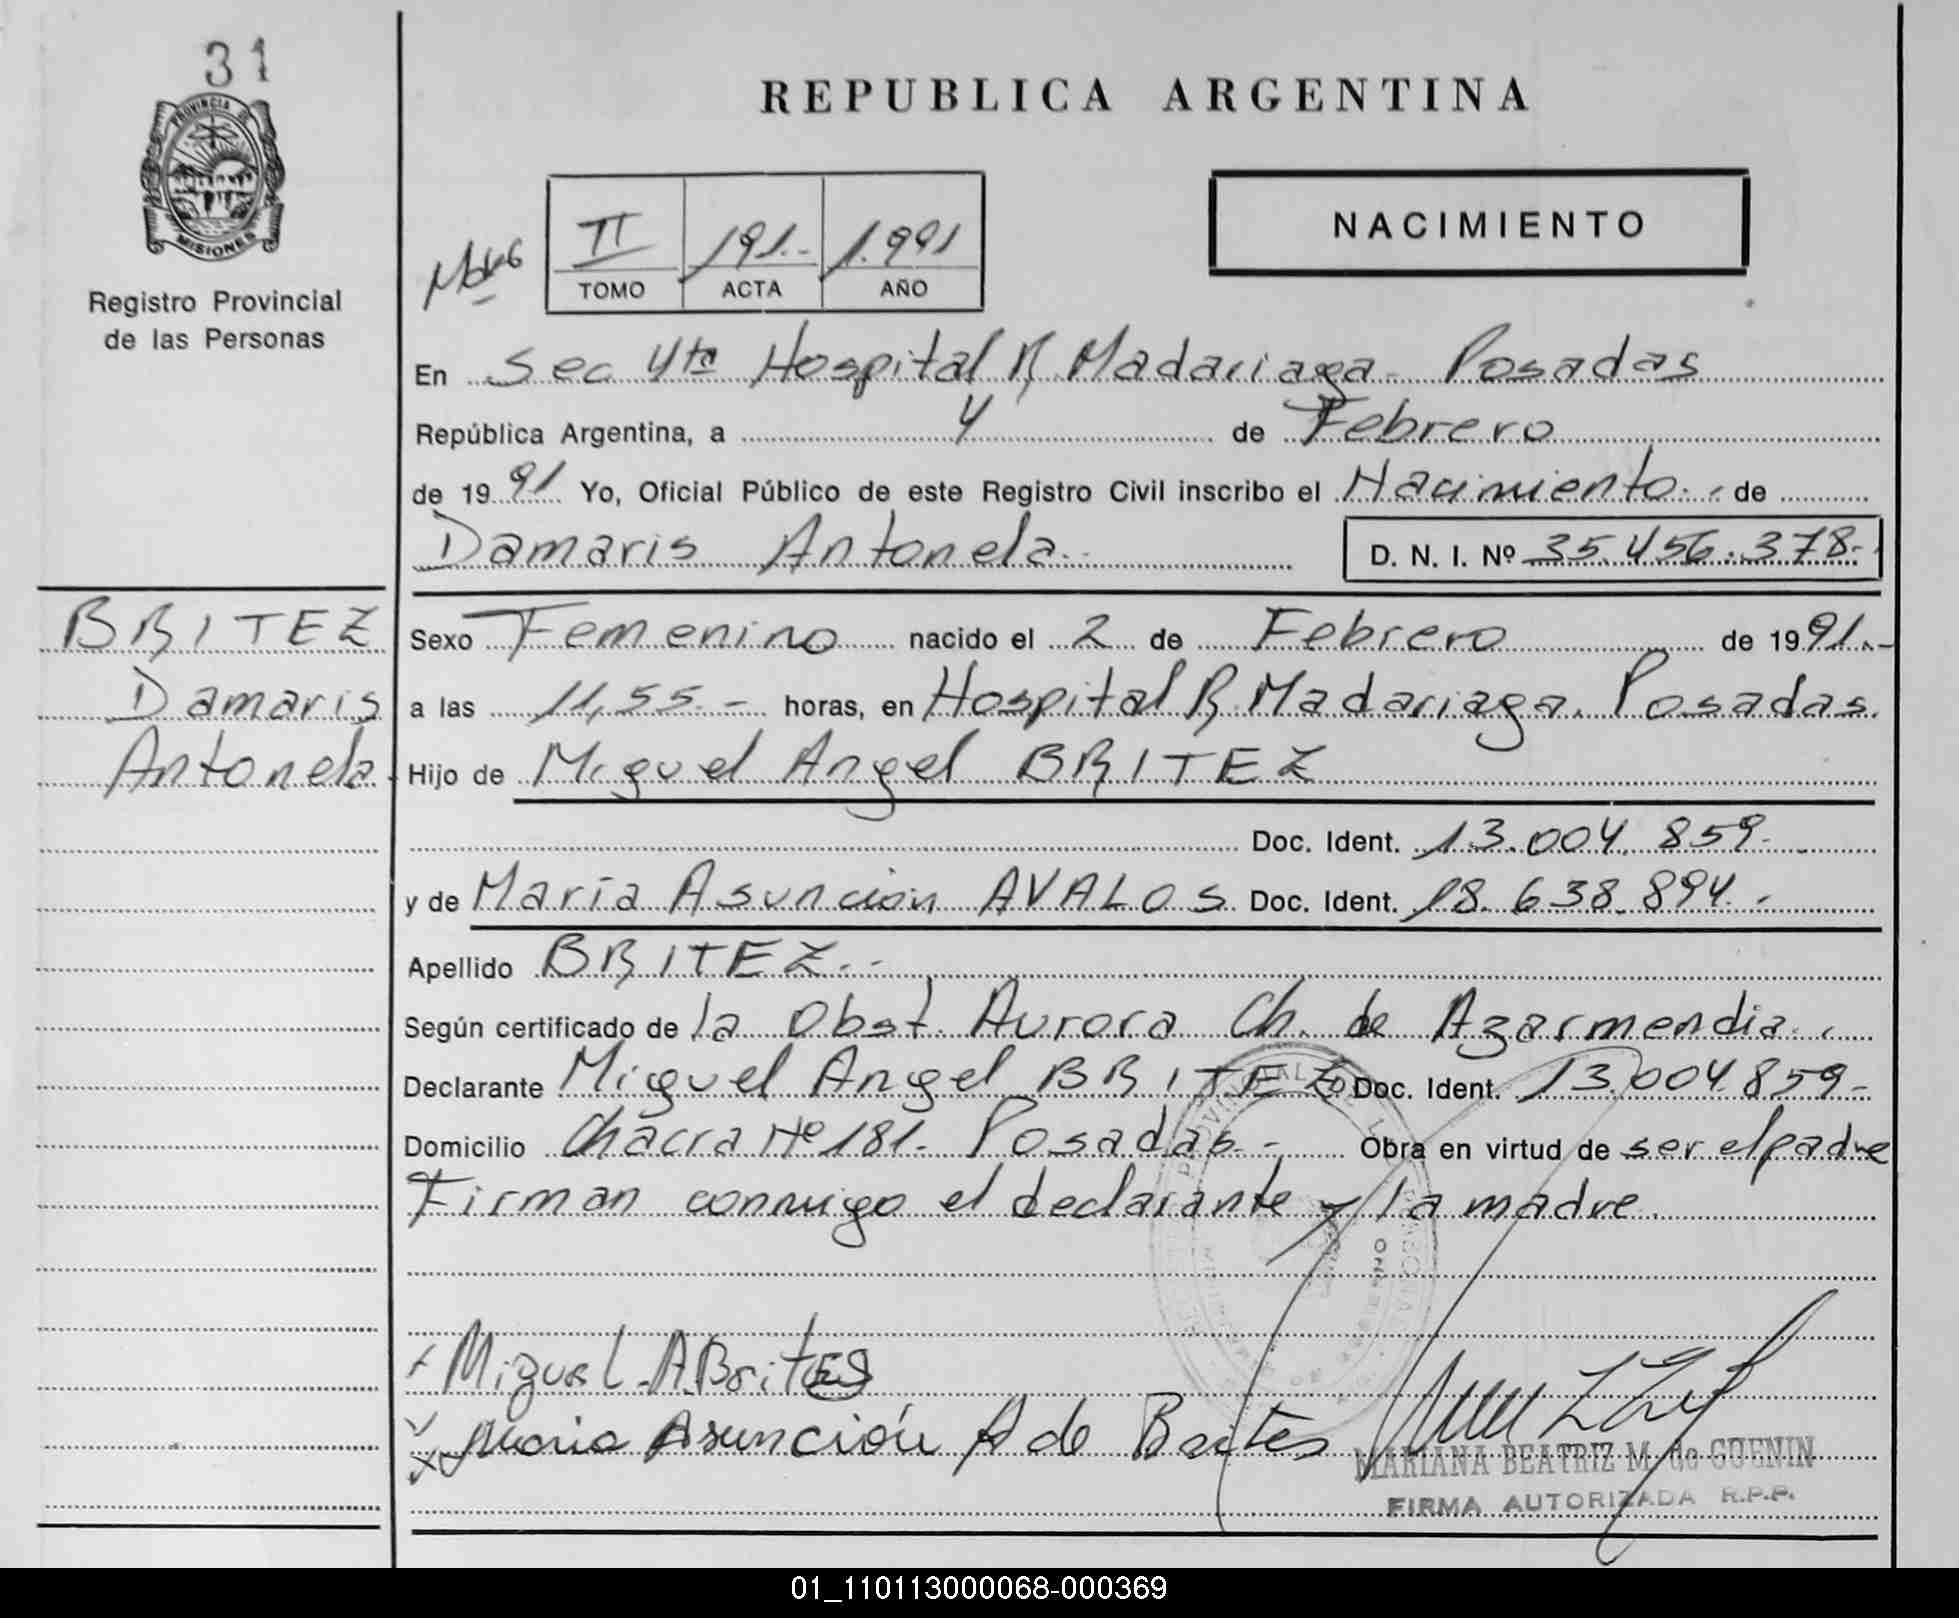 31
PROVINCIA DE
MISIONES
Registro Provincial
de las Personas
REPUBLICA ARGENTINA
NACIMIENTO
II 191.- 1.991
TOMO ACTA AÑO
En Sec 4ta Hospital R. Madariaga - Posadas
República Argentina, a 4 de Febrero
de 1991 Yo, Oficial Público de este Registro Civil inscribo el Nacimiento de
Damaris Antonela
D. N. I. Nº 35.456.378.-
BRITEZ
Damaris
Antonela
Sexo Femenino nacido el 2 de Febrero de 1991.-
a las 11,55.- horas, en Hospital R. Madariaga. Posadas.
Hijo de Miguel Angel BRITEZ
Doc. Ident. 13.004.859-
y de María Asunción AVALOS Doc. Ident. 18.638.894.-
Apellido BRITEZ.-
Según certificado de la Obst. Aurora Ch. de Azarmendia.
Declarante Miguel Angel BRITEZ Doc. Ident. 13.004.859-
Domicilio Chacra Nº 181. Posadas.- Obra en virtud de ser el padre
Firman conmigo el declarante y la madre.
Miguel A. Brites
Maria Asunción A de Brites
MARIANA BEATRIZ M. de GUENIN
FIRMA AUTORIZADA R.P.P.
01_110113000068-000369